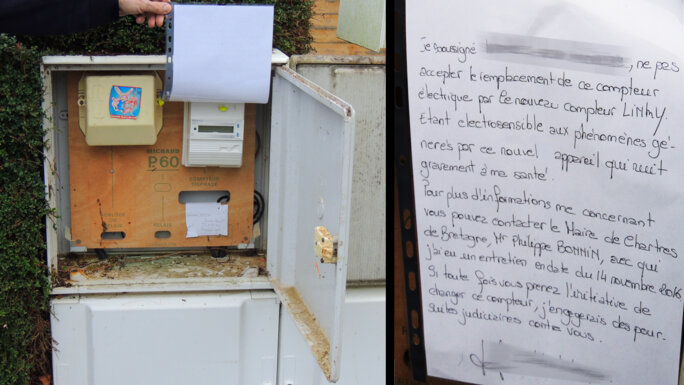 MICHAUD
P60
COMPTEUR
TARIFAGE
RELAIS
Je soussigné , ne pas
accepter le remplacement de ce compteur
électrique par le nouveau compteur LiNkY.
Etant electrosensible aux phénomènes gé-
nérés par ce nouvel appareil qui nuit
gravement à ma santé.
Pour plus d'informations me concernant
vous pouvez contacter le Maire de Chartres
de Bretagne, Mr Philippe BONNIN, avec qui
j'ai eu un entretien en date du 14 novembre 2016
Si toute fois vous prenez l'initiative de
changer ce compteur, j'engagerais des pour-
suites judiciaires contre vous.